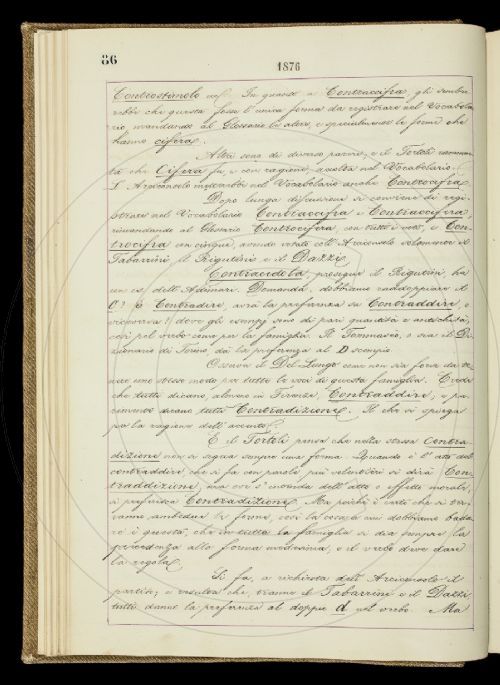 86
1876
Controstimolo ec. In quanto a Contraccifra, gli sembre-
rebbe che questa fosse l'unica forma da registrare nel Vocabola-
rio, mandando al Glossario le altre, e specialmente le forme che
hanno cifera.
Altri sono di diverso parere, e il Tortoli rammen-
ta che Cifera fu, e con ragione, accolta nel Vocabolario.
L'Arciconsolo metterebbe nel Vocabolario anche Controcifra.
Dopo lunga discussione si conviene di regi-
strare nel Vocabolario Contraccifra e Contraccifera,
rimandando al Glossario Controcifera, con tutti i voti, e Con-
trocifra con cinque, avendo votato coll'Arciconsolo solamente il
Tabarrini, il Rigutini e il Dazzi.
Contracidola, prosegue il Rigutini, ha
un es. dell'Adimari. Domanda, dobbiamo raddoppiare il
C? E Contradire, avrà la preferenza su Contraddire, o
viceversa? Deve gli esempj sono di pari quantità e antichità,
così pel verbo come per la famiglia. Il Tommaseo, o sia il Di-
zionario di Torino, dà la preferenza al D scempio.
Osserva il Del Lungo come non sia forse da te-
nere uno stesso modo per tutte le voci di questa famiglia. Crede
che tutti dicano, almeno in Firenze, Contraddire, e pa-
rimente dicano tutti Contradizione. Il che si spiega
per la ragione dell'accento.
E il Tortoli pensa che nella stessa Contra-
dizione non si segua sempre una forma. Quando è l'atto del
contraddire che si fa con parole più volentieri si dirà Con-
traddizione, ma ove s'intenda dell'atto o effetto morale,
si preferisca Contradizione. Ma poichè è certo che si tro-
vano ambedue le forme, così la cosa a cui dobbiamo bada-
re è questa, che in tutta la famiglia si dia sempre la
precedenza alla forma medesima, e il verbo deve dare
la regola.
Si fa, a richiesta dell'Arciconsolo il
partito; e risulta che, tranne il Tabarrini e il Dazzi,
tutti danno la preferenza al doppio d nel verbo. Ma